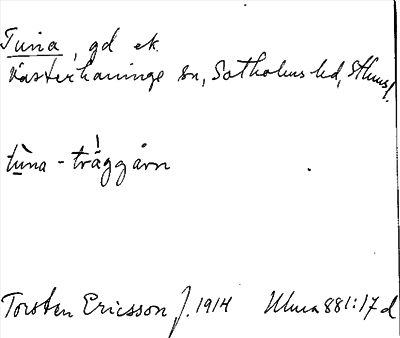 Tuna, gd ek.
Västerhaninge sn, Sotholms hd, Sthms l.
tùna - trä̀ggårn
Torsten Ericsson f. 1914 Uluma 881:17 d